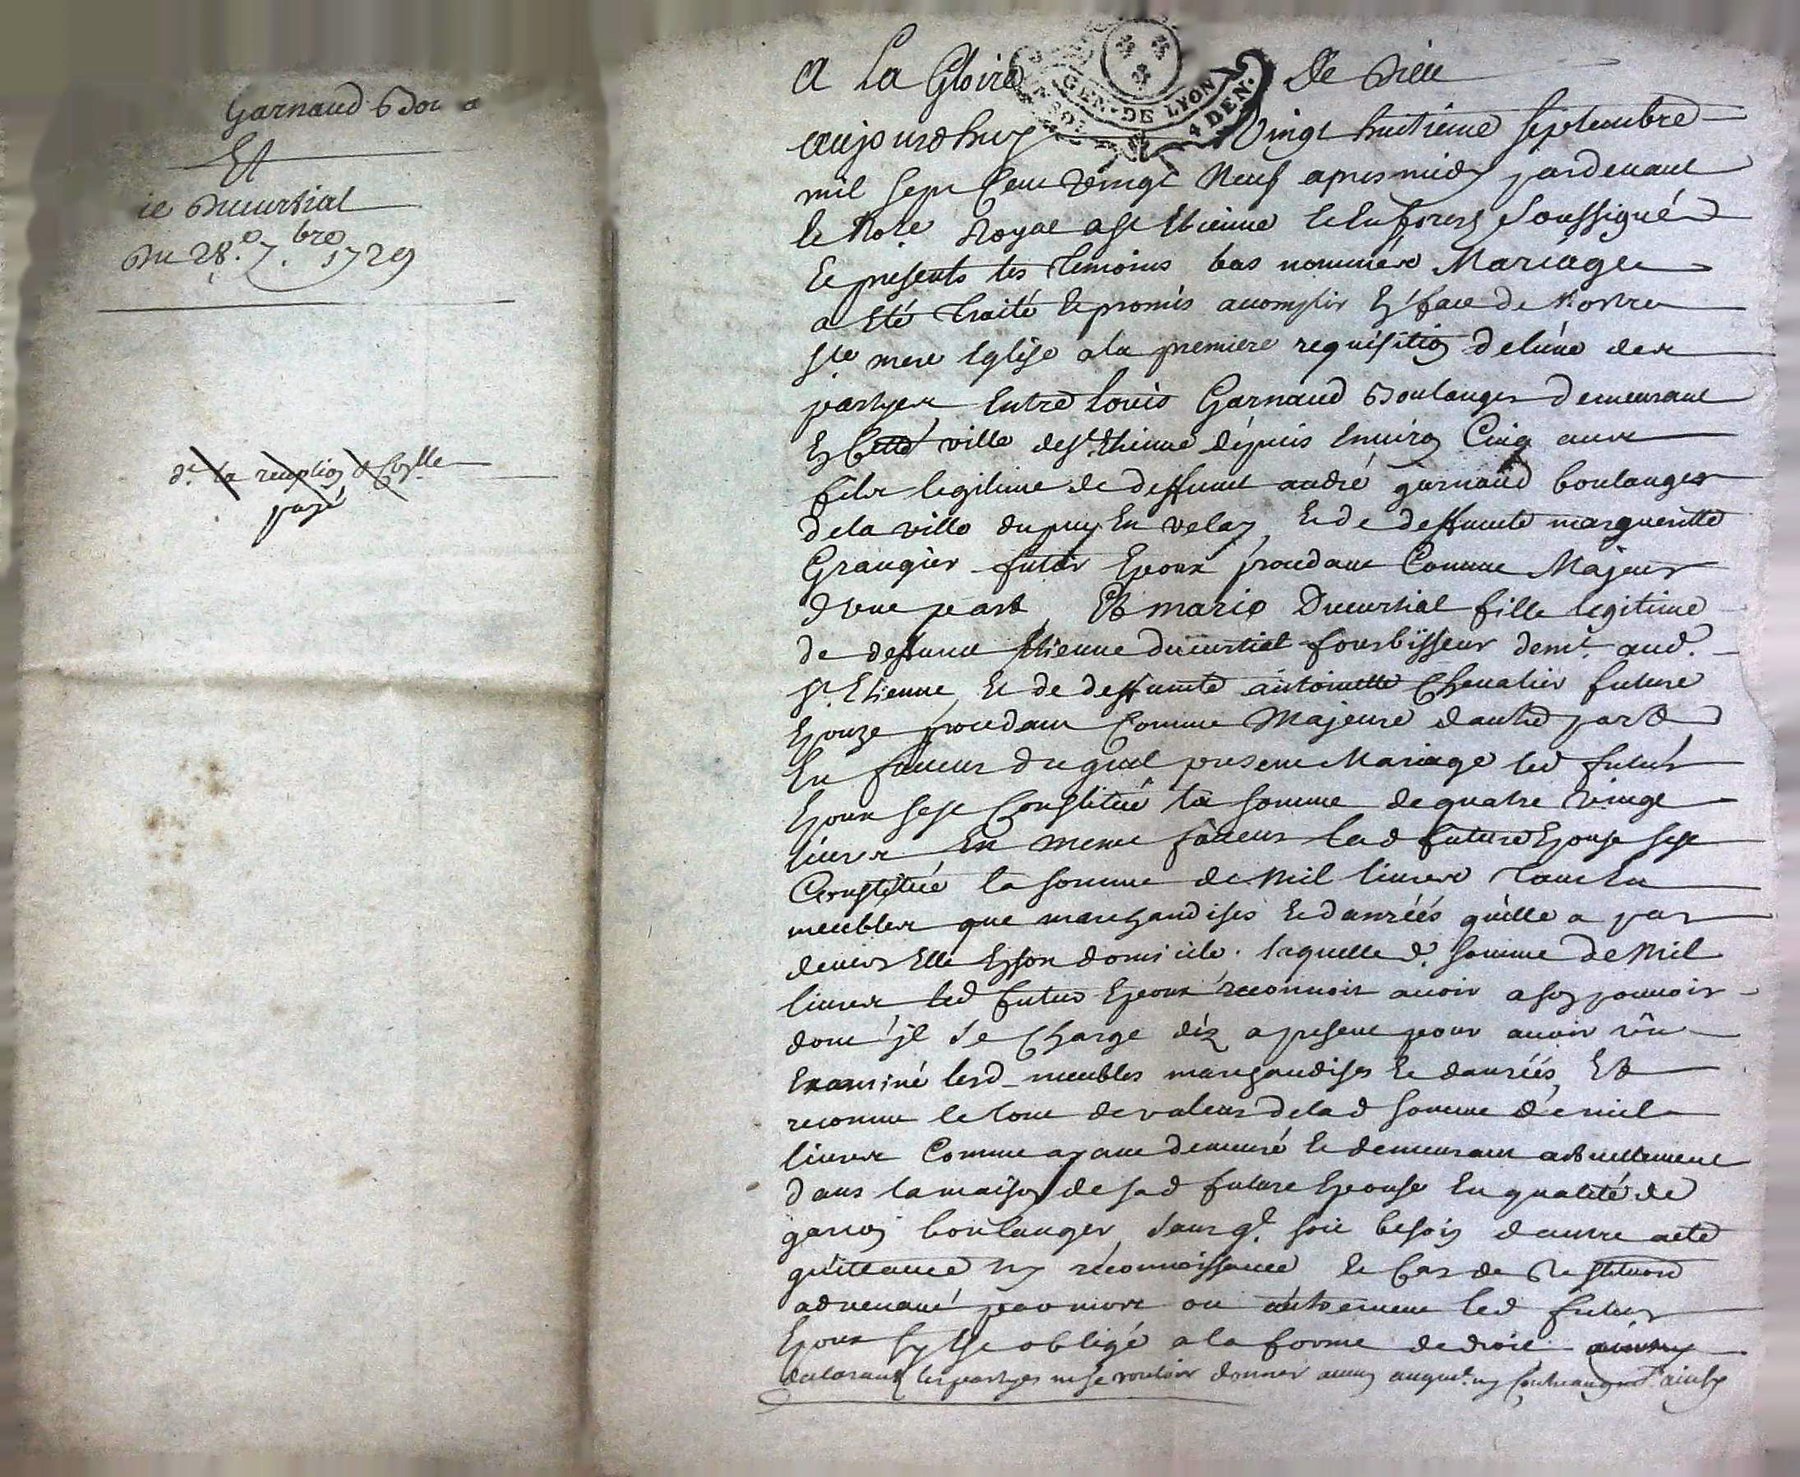 Garnaud
Et
ie Ducurtial
Du 28.e 7.bre 1729
d.t la reception & Con.lle
payé
GEN. DE LYON
4 DEN.
A La Gloire De Dieu
aujourdhuy Vingt huitieme Septembre
mil Sept Cent Vingt Neuf apres midy pardevant
le No.re Royal a St Etienne En forest Soussigné
Et presents les Temoins bas nommés Mariage
a Eté Traité Et promis accomplir En face de Nostre
Ste mere Eglise a la premiere requisition de lune des
partyes Entre Louis Garnaud Boulanger Demeurant
En Cette ville de St. Etienne depuis Environ Cinq ans
fils legitime de deffunt andré garnaud boulanger
de la ville du puy En velay, Et de deffunte marguerite
Grangier futur Epoux procedant Comme Majeur
d'vne part, Et marie Ducurtial fille legitime
de deffunt Etienne ducurtial fourbisseur dem.t aud.
St. Etienne, Et de deffunte antoinette Chevalier future
Epouze procedant Comme Majeure d'autre part
En faveur duquel present Mariage led futur
Epoux sest Constitué la somme de quatre vingt
livres En meme faveur lad future Epouse sest
Constituée la somme de Mil livres Tant En
meubles que marchandises Et danréés quelle a par
devers Elle En son domicile. laquelle d. somme de Mil
livres led futur Epoux reconnoit avoir a son pouvoir
dont jl Se Charge déz a present pour avoir vû
Examiné lesd meubles marchandises Et danréés, Et
reconnu le tout de valeur de lad somme de mil
livres Comme ayant demeuré Et demeurant actuellement
dans la maison de sad future Epouse En qualité de
garçon boulanger Sans q.l soit besoin dautre acte
quittance ny reconnoissance Et Cas de Restitution
advenant par mort ou autrement led futur
Epoux sy Est obligé a la forme de droit
declarant les partyes ne se vouloir donner aucun augm.t ny Contreaugm.t ainsy